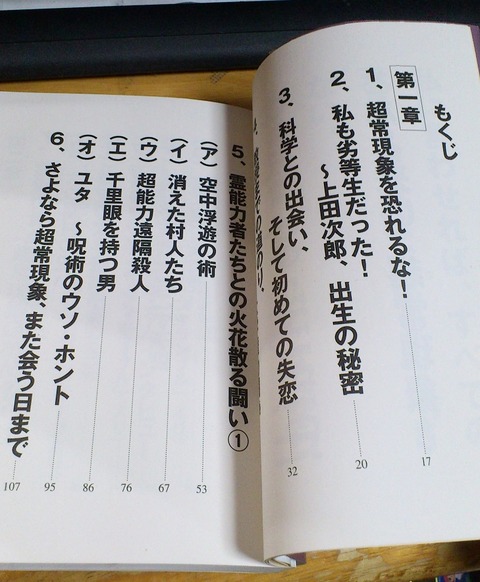 もくじ
第一章
1、超常現象を恐れるな！ 17
2、私も劣等生だった！
～上田次郎、出生の秘密 20
3、科学との出会い、
そして初めての失恋 32
5、霊能力者たちとの火花散る闘い①
（ア）空中浮遊の術 53
（イ）消えた村人たち 67
（ウ）超能力遠隔殺人 76
（エ）千里眼を持つ男 86
（オ）ユタ ～呪術のウソ・ホント 95
6、さよなら超常現象、また会う日まで 107